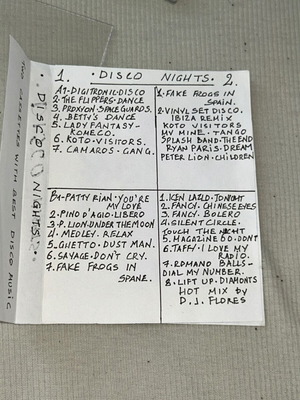 TWO CASSETTES WITH BEST DISCO MUSIC
·DISCO NIGHTS·
1. · DISCO NIGHTS · 2.
A1-DIGITRONIC-DISCO
2·THE FLIPPERS·DANCE
3·PROXYON·SPACE GUARDS.
4·BETTY'S DANCE
5·LADY FANTASY-
KOMECO.
6·KOTO·VISITORS.
7·CAMAROS·GANG.
1·FAKE FROGS IN
SPAIN.
2·VINYL SET DISCO.
IBIZA REMIX
KOTO VISITORS
MY MINE·TANGO
SPLASH BAND·THE END
RYAN PARIS·DREAM
PETER LION·CHILDREN
B1-PATTY RIAN·YOU'RE
MY LOVE
2·PINO D'AGIO·LIBERO
3·P.LION·UNDER THE MOON
4·MEDLEY·RELAX
5·GHETTO·DUST MAN.
6·SAVAGE·DON'T CRY.
7·FAKE FROGS IN
SPANE.
1·KEN LAZLO·TONIGHT
2·FANCY·CHINESE EYES
3·FANCY·BOLERO
4·SILENT CIRCLE·
TOUCH THE NIGHT
5·MAGAZINE 60·DON'T
6·TAFFY·I LOVE MY
RADIO.
7·ROMANO BALLS-
DIAL MY NUMBER.
8·LIFT UP·DIAMONTS
HOT MIX by
D.J. FLORES